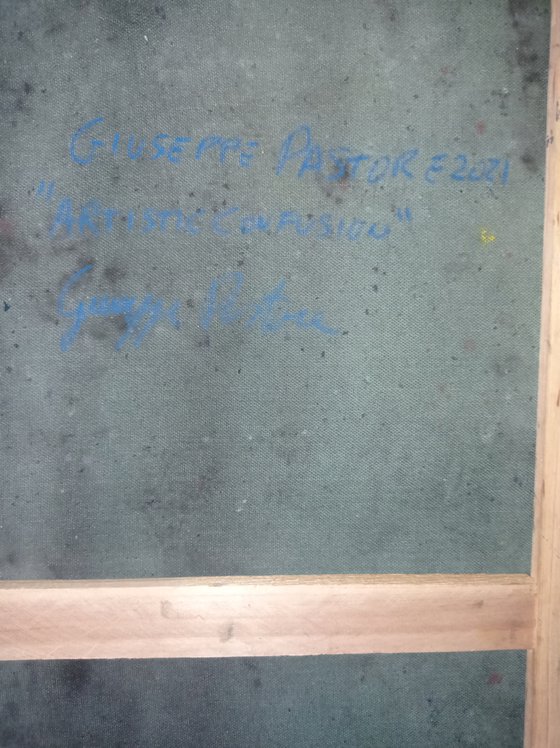 GIUSEPPE PASTORE 2021
"ARTISTIC CONFUSION"
Giuseppe Pastore